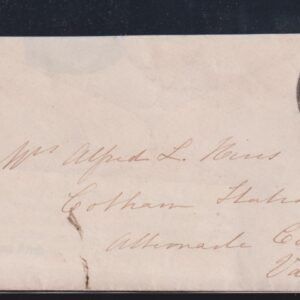 Mrs Alfred L. Hives
Cobham Statio
Albemarle Co
Va